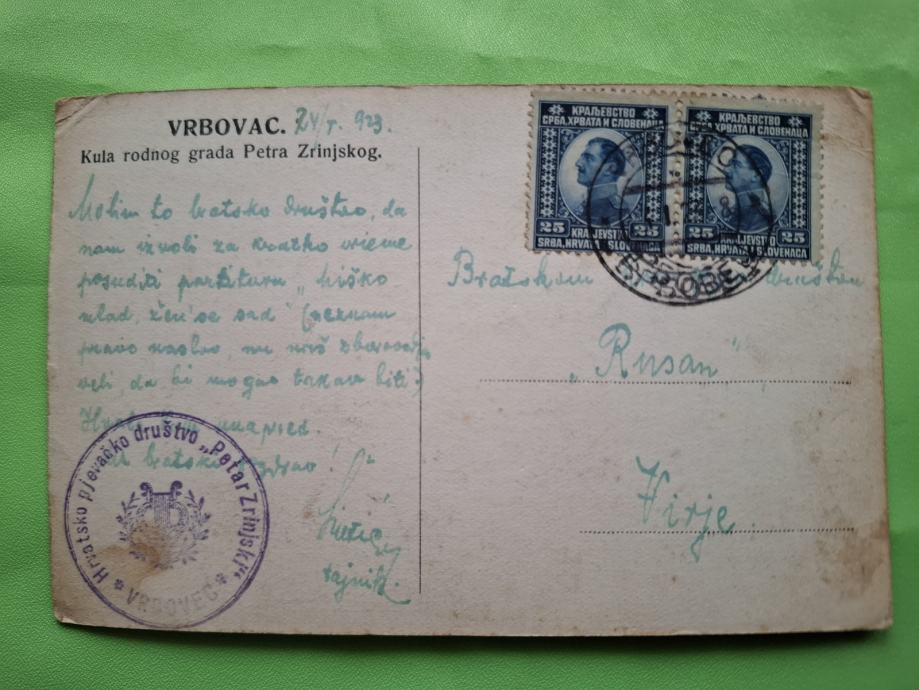 VRBOVAC. 24/ 923.
Kula rodnog grada Petra Zrinjskog.
Molim to bratsko društvo, da
nam izvoli za kratko vrieme
posuditi partituru „
mlad, žen' se sad" (neznam
pravo naslov, 
veli, da bi mogao takav biti)
unapred.
bratski
tajnik.
Hrvatsko pjevačko društvo „Petar Zrinjski"
VRBOVEC
КРАЉЕВСТВО
СРБА, ХРВАТА И СЛОВЕНАЦА
25 25
KRALJEVSTVO
SRBA, HRVATA I SLOVENACA
КРАЉЕВСТВО
СРБА, ХРВАТА И СЛОВЕНАЦА
25 25
KRALJEVSTVO
SRBA, HRVATA I SLOVENACA
Bratskom društvu
„Rusan"
Virje